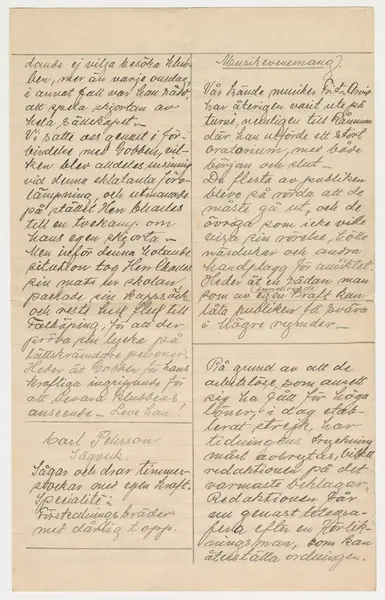 dande ej vilja besöka klub-
ben, mer än varje onsdag,
i annat fall var han rädd
att spela skjortan av
hela sällskapet.—
Vi satte oss genast i för-
bindelse med Gobben, vil-
ken blev alldeles ursinnig
vid denna sktalanta föro-
lämpning, och utmanade
på stället Herr Charles
till en tvekamp om
hans egen skjorta.—
Men inför denna hotande
situation tog Herr Charles
sin mats ur skolan,
packade sin kappsäck
och reste hals över huvud till
Falköping, för att der
pröva sin lycka på
lättskrämdare personer.
Heder åt Gobben för hans
kraftiga ingripande för
att bevara klubbens
anseende.— Leve han!
Carl Petersson
Sågverk.
Sågar och drar timmer-
stockar med egen kraft.
Specialité:
Förskedningsbräder
med dålig topp.
Musikevenemang
Vår kände musiker Fritz
har återigen varit ute på
turné, nemligen till
där han utförde ett stort
oratorium, med både
början och slut.—
De flesta av publiken
bleve så rörda att de
måste gå ut, och de
övriga som icke ville
visa sin rörelse, höllo
näsdukar och andra
handplagg för ansiktet.
Heder åt en sådan man
som av egen kraft kan
låta publiken få sväva
i högre rymder.—
På grund av att de
arbetslöse, som ansett
sig ha fått för höga
löner, i dag etab-
lerat strejk, har
tidningens tryckning
måst avbrytas, vilket
redaktionen på det
varmaste beklagar.
Redaktionen får
nu genast telegra-
fera efter en förlik-
ningsman, som kan
återställa ordningen.